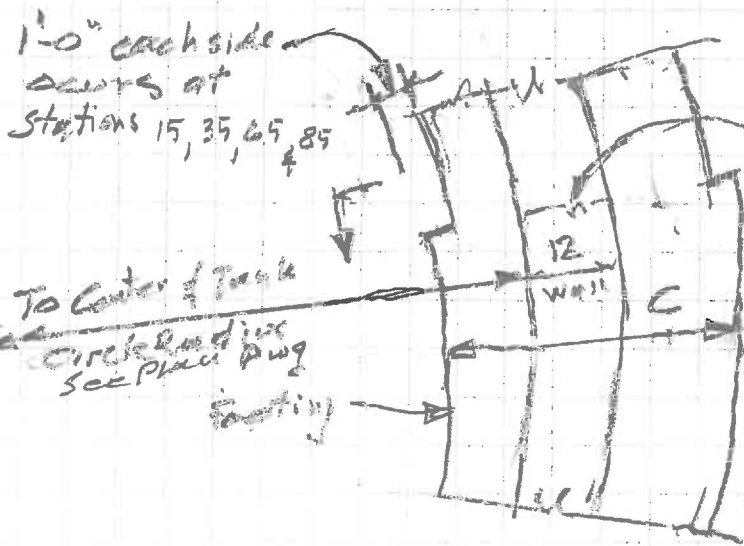 1'-0" each side
occurs at
stations 15, 35, 65 & 85
12
wall
C
To Center of Tank
Circle Radius
See Plan Dwg
footing